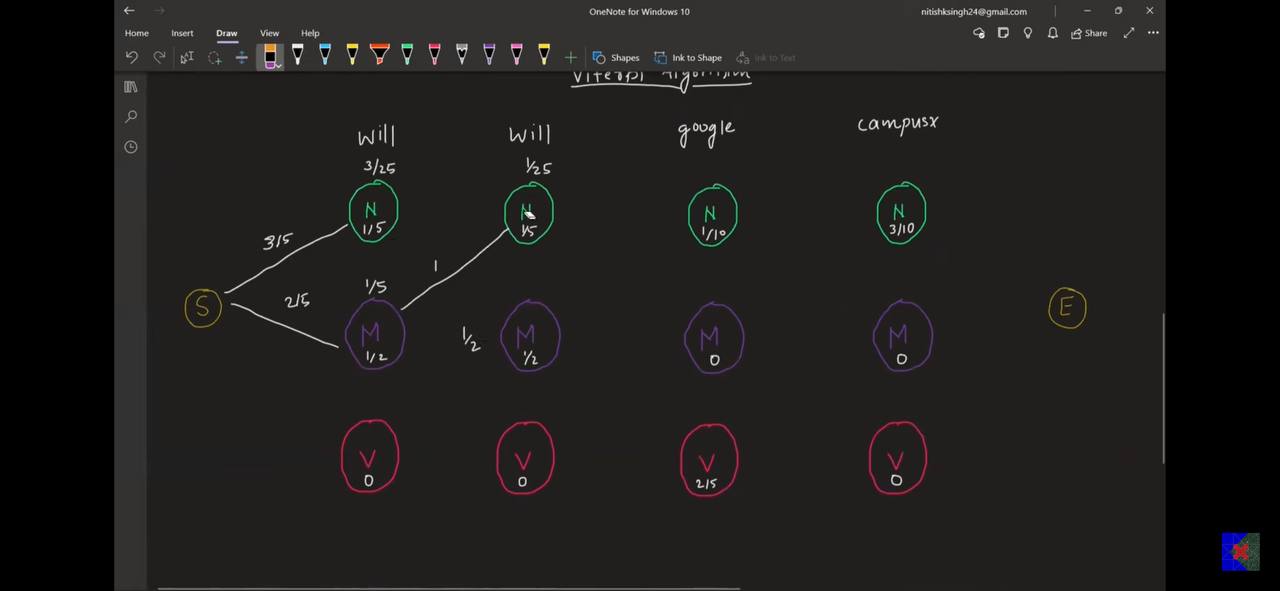 OneNote for Windows 10
nitishksingh24@gmail.com
Home Insert Draw View Help
Shapes Ink to Shape Ink to Text Share
Viterbi Algorithm
will will google campusx
3/25 1/25
N N N N
1/5 1/5 1/10 3/10
3/5
1
1/5
2/5
S E
M M M M
1/2 1/2 1/2 0 0
V V V V
0 0 2/5 0